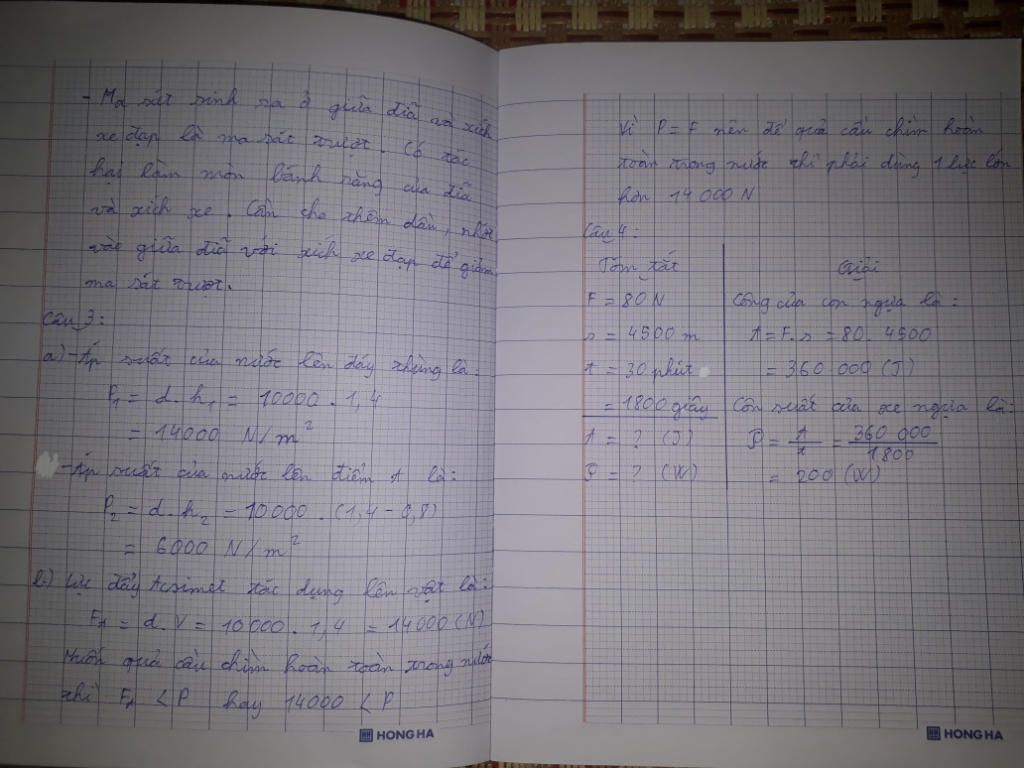 - Ma sát sinh ra ở giữa đĩa và xích
xe đạp là ma sát trượt. Có tác
hại làm mòn bánh răng của đĩa
và xích xe. Cần cho thêm dầu, nhớt
vào giữa đĩa với xích xe đạp để giảm
ma sát trượt.
Câu 3:
a) - Áp suất của nước lên đáy thùng là:
P₁ = d.h₁ = 10000 . 1,4
= 14000 N/m²
- Áp suất của nước lên điểm A là:
P₂ = d.h₂ = 10000 . (1,4 - 0,8)
= 6000 N/m²
b) Lực đẩy Acsimet tác dụng lên vật là:
F_A = d.V = 10000 . 1,4 = 14000 (N)
Muốn quả cầu chìm hoàn toàn trong nước
thì F_A < P hay 14000 < P
HONG HA
Vì P = F nên để quả cầu chìm hoàn
toàn trong nước thì phải dùng 1 lực lớn
hơn 14 000 N
Câu 4:
Tóm tắt
F = 80 N
s = 4500 m
t = 30 phút
= 1800 giây
A = ? (J)
P = ? (W)
Giải
Công của con ngựa là:
A = F.s = 80 . 4500
= 360 000 (J)
Côn suất của xe ngựa là:
P = A/t = 360 000/1800
= 200 (W)
HONG HA